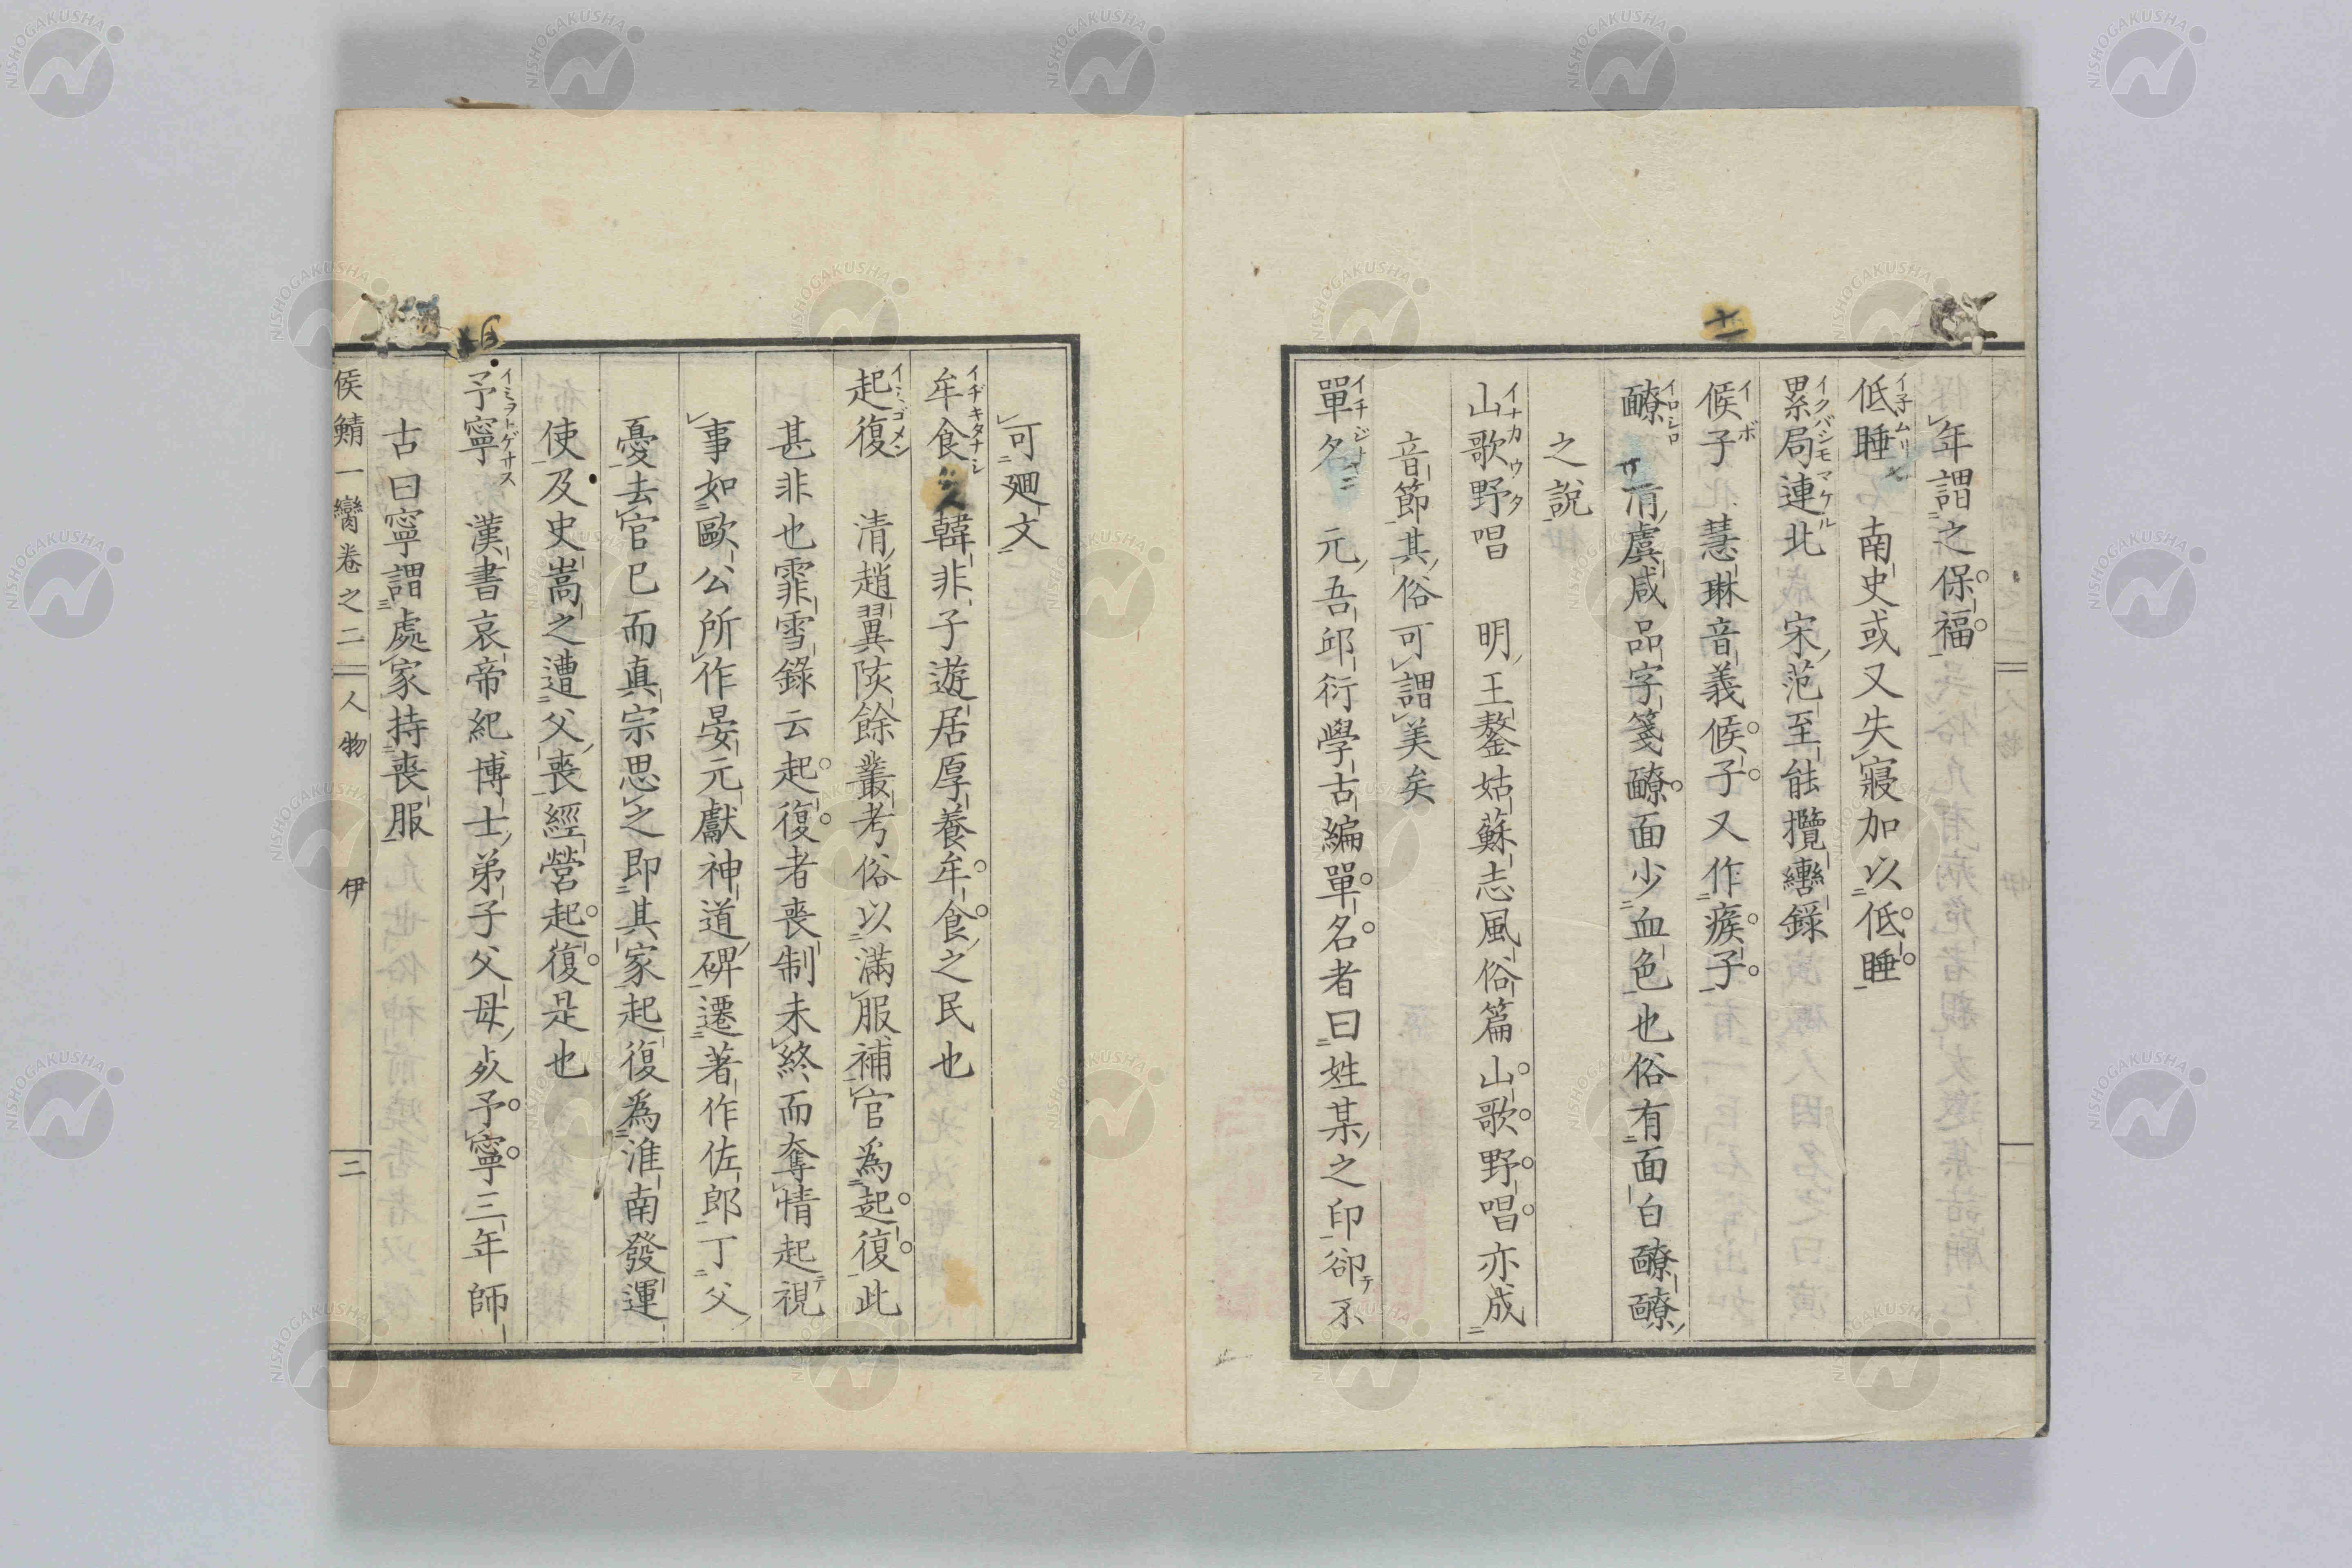 年謂之保福
低睡 南史或又失寢加以低睡
イ子ムリ
累局連北 宋范至能攬轡錄
イクバシモマケル
候子 慧琳音義候子又作瘊子
イボ
醿 清虞咸品字箋 面少血色也俗有面白
イロシロ
之說
山歌野唱 明王鏊姑蘇志風俗篇山歌野唱亦成
イナカウタ
音節其俗可謂美矣
單名 元吾邱衍學古編單名者曰姓某之印卻不
イチジナニ
可廻文
牟食 韓非子遊居厚養牟食之民也
イヂキタナシ
起復 清趙翼陔餘叢考俗以滿服補官爲起復此
イミゴメン
甚非也霏雪錄云起復者喪制未終而奪情起視
事如歐公所作晏元獻神道碑遷著作佐郎丁父
憂去官已而真宗思之即其家起復爲淮南發運
使及史嵩之遭父喪經營起復是也
予寧 漢書哀帝紀博士弟子父母死予寧三年師
イミヲトゲサス
古曰寧謂處家持喪服
侯鯖一臠卷之二 人物 伊 二
NISHOGAKUSHA